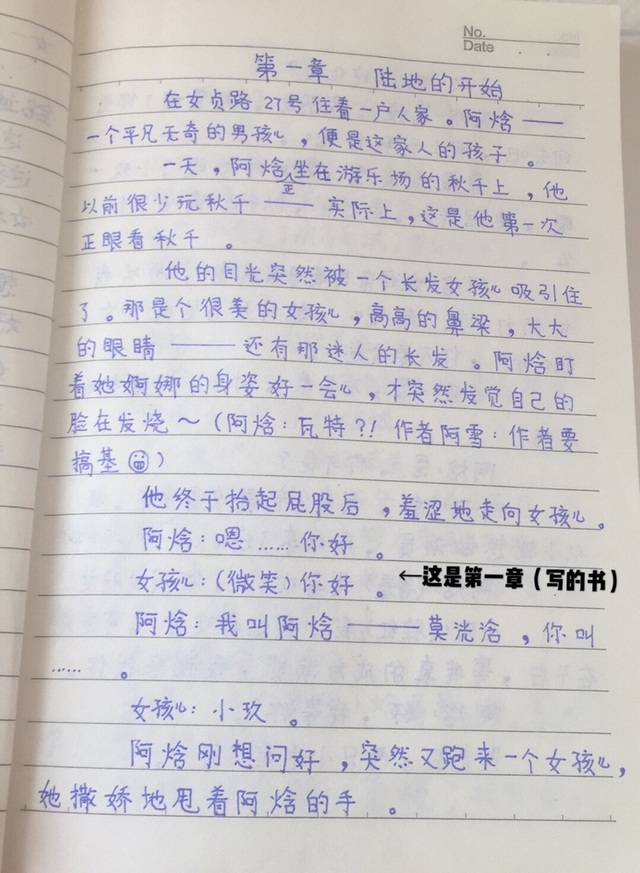 No.
Date
第一章 陆地的开始
在女贞路27号住着一户人家。阿焓——
一个平凡无奇的男孩儿，便是这家人的孩子。
一天，阿焓正坐在游乐场的秋千上，他
以前很少玩秋千——实际上，这是他第一次
正眼看秋千。
他的目光突然被一个长发女孩儿吸引住
了。那是个很美的女孩儿，高高的鼻梁，大大
的眼睛——还有那迷人的长发。阿焓盯
着她婀娜的身姿好一会儿，才突然发觉自己的
脸在发烧～（阿焓：瓦特?! 作者阿雪：作者要
搞基😀）
他终于抬起屁股后，羞涩地走向女孩儿。
阿焓：嗯……你好。
女孩儿：（微笑）你好。←这是第一章（写的书）
阿焓：我叫阿焓——莫洸浛，你叫
……。
女孩儿：小玖。
阿焓刚想问好，突然又跑来一个女孩儿，
她撒娇地甩着阿焓的手。